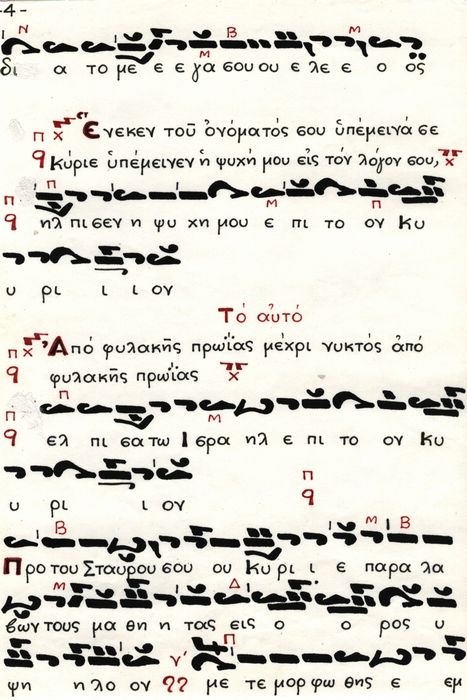 -4-
Ν Β Μ
Μ
δι α το με ε ε γα σου ου ε λε ε ο ος
π χ Ενεκεν τοῦ ὀνόματός σου ὑπέμεινά σε
q Κύριε ὑπέμεινεν ἡ ψυχή μου εἰς τόν λόγον σου, χ
π Π
Μ Π
q ηλ πι σεν η ψυ χη μου ε πι το ον Κυ
υ ρι ι ι ον
Τό αὐτό
π χ Ἀπό φυλακῆς πρωΐας μέχρι νυκτός ἀπό
q φυλακῆς πρωΐας χ
π Π
Μ Π
q ελ πι σα τω Ισρα ηλ ε πι το ον Κυ
π
υ ρι ι ον q
Β Μ Β
Προ του Σταυρου σου ου Κυ ρι ι ε παρα λα
Μ Δ
βων τους μα θη η τας εις ο ο ρος υ
Π
ψη η λο ον γ' ϨϨ με τε μορ φω θης ε εμ